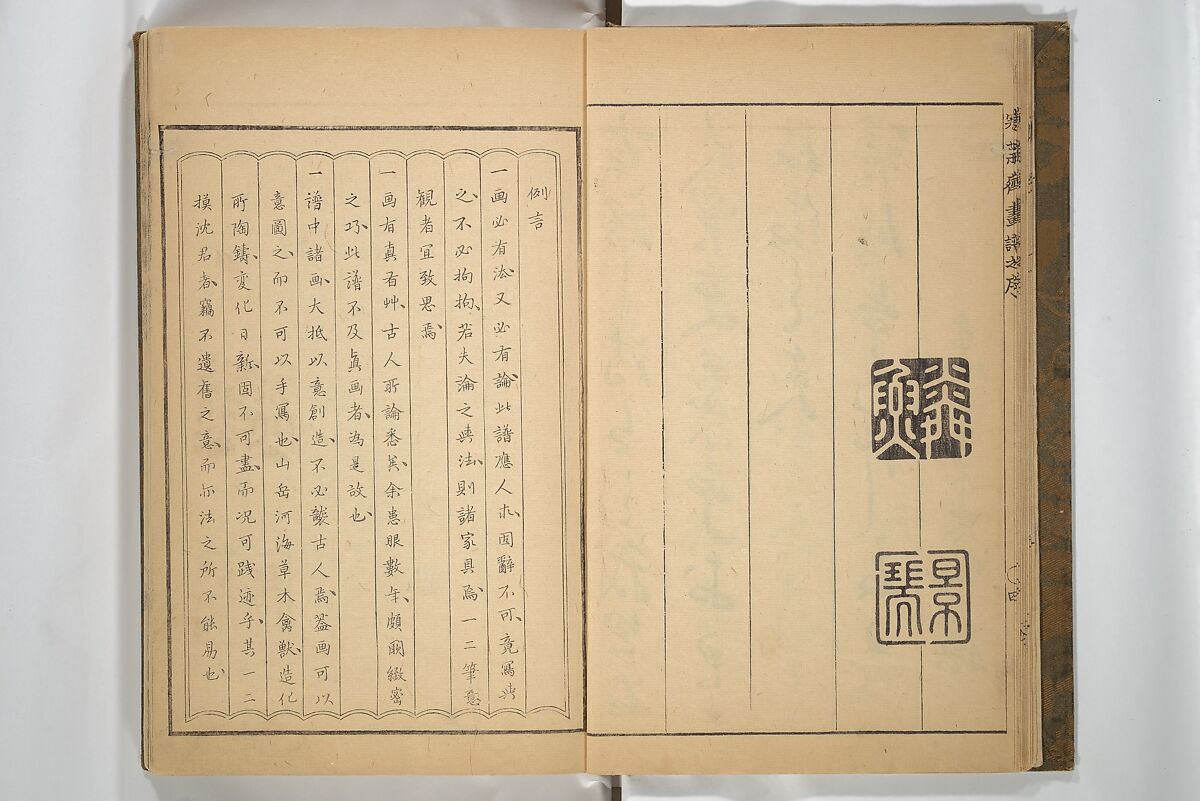 画譜序
景
例言
一画必有法又必有論此譜應人求固辭不可竟寫與
之不必拘拘若夫論之與法則諸家具焉一二筆意
観者宜致思焉
一画有真有艸古人所論悉矣余患眼數年頗闕緻密
之巧此譜不及真画者為是故也
一譜中諸画大抵以意創造不必襲古人焉蓋画可以
意圖之而不可以手寫也山岳河海草木禽獸造化
所陶鑄變化日新固不可盡而况可践迹乎其一二
摸沈君者竊不遺舊之意而亦法之所不能易也